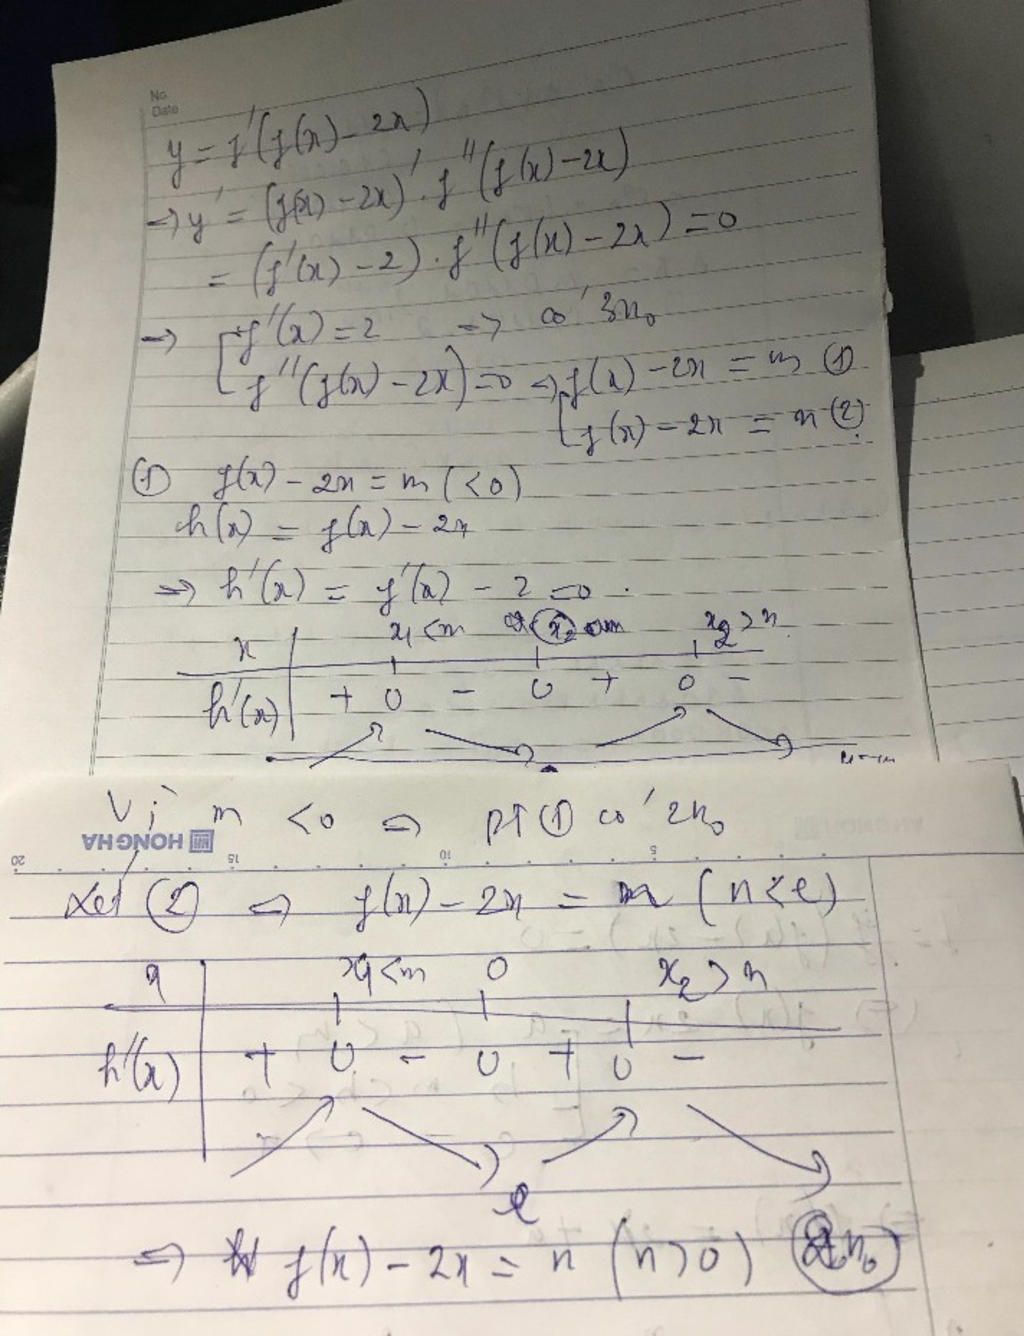 No.
Date
y = f'(f(x) - 2x)
→ y' = (f(x) - 2x)' . f''(f(x) - 2x)
= (f'(x) - 2) . f''(f(x) - 2x) = 0
⇒ [ f'(x) = 2 ⇒ có 3n₀
f''(f(x) - 2x) = 0 ⇔ [ f(x) - 2x = m (1)
f(x) - 2x = n (2)
(1) f(x) - 2x = m (<0)
h(x) = f(x) - 2x
⇒ h'(x) = f'(x) - 2 = 0.
x x₁ < m x₂ x₂ > n
h'(x) + 0 - 0 + 0 -
Vì m < 0 ⇒ PT (1) có 2n₀
HONG HA
20 15 10 5
Xét (2) ⇔ f(x) - 2x = n (n < e)
x x₁ < m 0 x₂ > n
h'(x) + 0 - 0 + 0 -
e
⇒ f(x) - 2x = n (n > 0) 2n₀